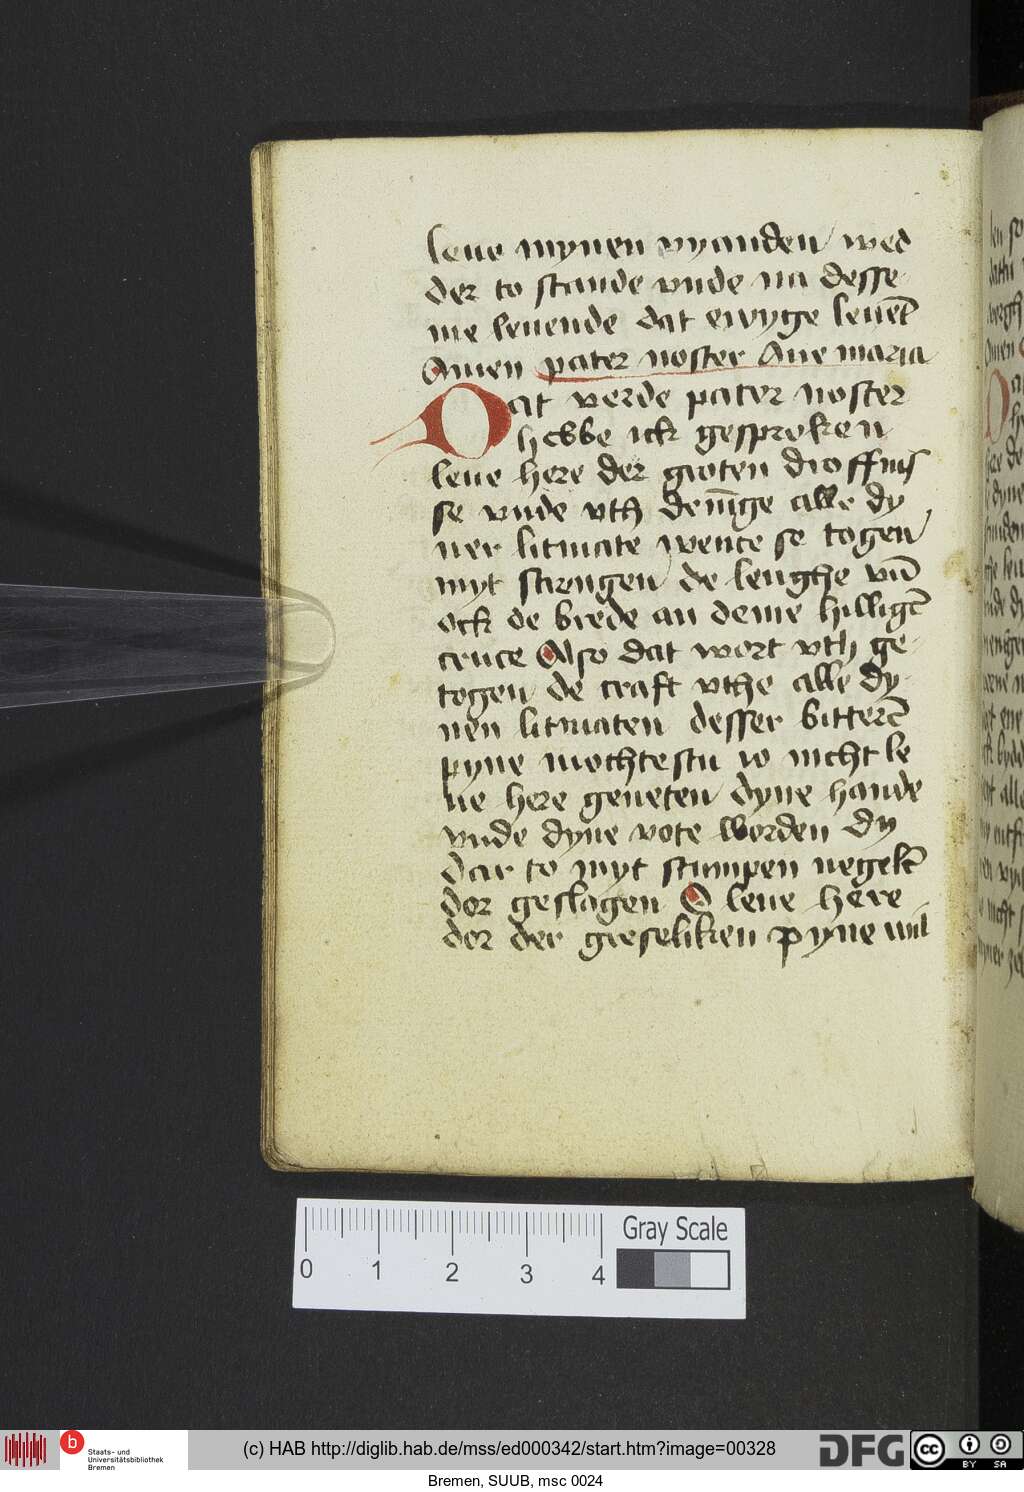 leue mynen vyanden wed
der to stande vnde na desse
me leuende dat ewyge leuet̄
Amen pater noster Aue maria
Dat verde pater noster
hebbe ick gesproken
leue here der groten droffnis
se vnde vth den̄ige alle dy
ner litmate wente se togen
myt strengen de lenghe vn̄
ock de brede an deme hilligē
cruce Also dat wort vth ge
togen de craft vthe alle dy
nen litmaten desser bitterē
pyne mochtestu io nicht le
ue here geneten dyne hande
vnde dyne vote worden dy
dar to myt stumpen negelē
dor geslagen O leue here
dor der greseliken pyne wil
Gray Scale
0 1 2 3 4
b
Staats- und
Universitätsbibliothek
Bremen
(c) HAB http://diglib.hab.de/mss/ed000342/start.htm?image=00328
DFG
cc BY SA
Bremen, SUUB, msc 0024